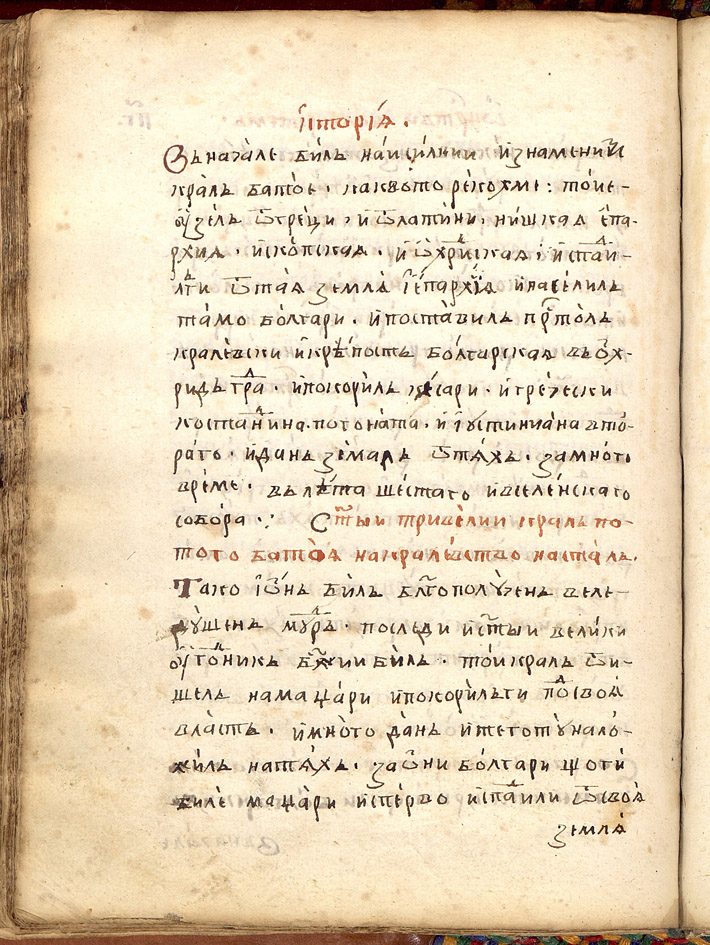 Їсторїѧ.
Въначале билъ наисилнии изнамени
кралъ батое. каквото рекохме: тои е
ѹзелъ ѿгреци, и ѿлатини, нишкаа епа-
рхиа. ископскаа. и ѡхридскаа, испади-
лги ѿтаа землѧ їепархїѧ инаселилъ
тамо болгари. ипоставилъ прⷭтолъ
кралевски икрѣпостъ болгарскаа въѡх-
ридъ граⷣ. ипокорилъ кесари. игречески
костандина. погоната. иїустиниана вто-
раго. идань земалъ ѿтѧхъ. замного
време. въ лѣта шестаго ивселенскаго
собора. Ст҃ыи тривелии кралъ по-
того батоѧ накралевство насталъ.
Тако їѡнь билъ бл҃гополученъ веле-
душенъ муⷣръ. последи ист҃ыи велики
ѹгоⷣникъ бж҃ии билъ. тои кралъ ѿи-
шелъ намаџари ипокорилъги поⷣсвоѧ
власть. имного дань итеготу нало-
жилъ натѧхъ. заѡни болгари щоги
биле маџари исперво испаⷣили ѿсвоѧ
землѧ